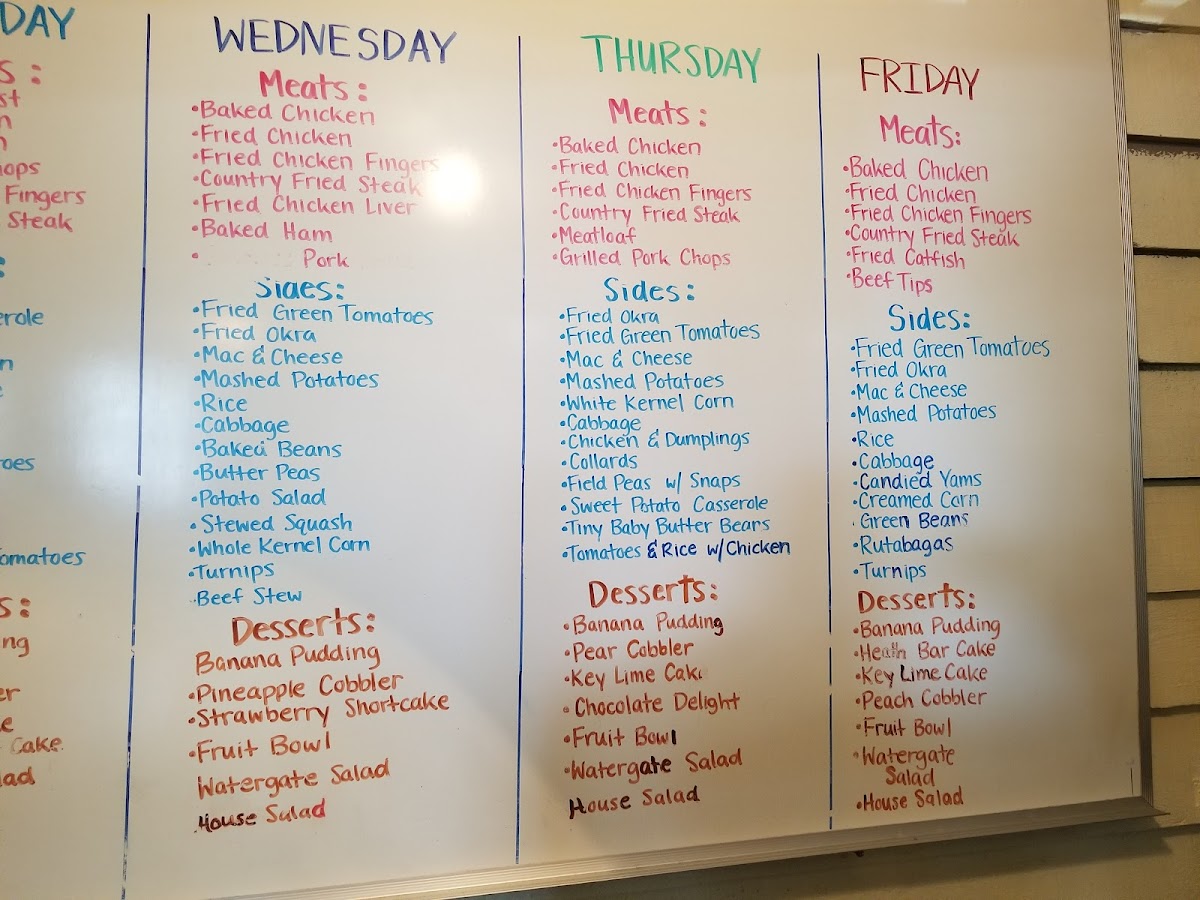 DAY
S:
st
n
n
ops
Fingers
Steak
:
erole
n
e
oes
omatoes
s:
ng
er
e
Cake
lad
WEDNESDAY
Meats:
•Baked Chicken
•Fried Chicken
•Fried Chicken Fingers
•Country Fried Steak
•Fried Chicken Liver
•Baked Ham
• Pork
Sides:
•Fried Green Tomatoes
•Fried Okra
•Mac & Cheese
•Mashed Potatoes
•Rice
•Cabbage
•Baked Beans
•Butter Peas
•Potato Salad
•Stewed Squash
•Whole Kernel Corn
•Turnips
•Beef Stew
Desserts:
Banana Pudding
•Pineapple Cobbler
•Strawberry Shortcake
•Fruit Bowl
Watergate Salad
•House Salad
THURSDAY
Meats:
•Baked Chicken
•Fried Chicken
•Fried Chicken Fingers
•Country Fried Steak
•Meatloaf
•Grilled Pork Chops
Sides:
•Fried Okra
•Fried Green Tomatoes
•Mac & Cheese
•Mashed Potatoes
•White Kernel Corn
•Cabbage
•Chicken & Dumplings
•Collards
•Field Peas w/ Snaps
•Sweet Potato Casserole
•Tiny Baby Butter Beans
•Tomatoes & Rice w/Chicken
Desserts:
•Banana Pudding
•Pear Cobbler
•Key Lime Cake
•Chocolate Delight
•Fruit Bowl
•Watergate Salad
House Salad
FRIDAY
Meats:
•Baked Chicken
•Fried Chicken
•Fried Chicken Fingers
•Country Fried Steak
•Fried Catfish
•Beef Tips
Sides:
•Fried Green Tomatoes
•Fried Okra
•Mac & Cheese
•Mashed Potatoes
•Rice
•Cabbage
•Candied Yams
•Creamed Corn
•Green Beans
•Rutabagas
•Turnips
Desserts:
•Banana Pudding
•Heath Bar Cake
•Key Lime Cake
•Peach Cobbler
•Fruit Bowl
•Watergate
Salad
•House Salad